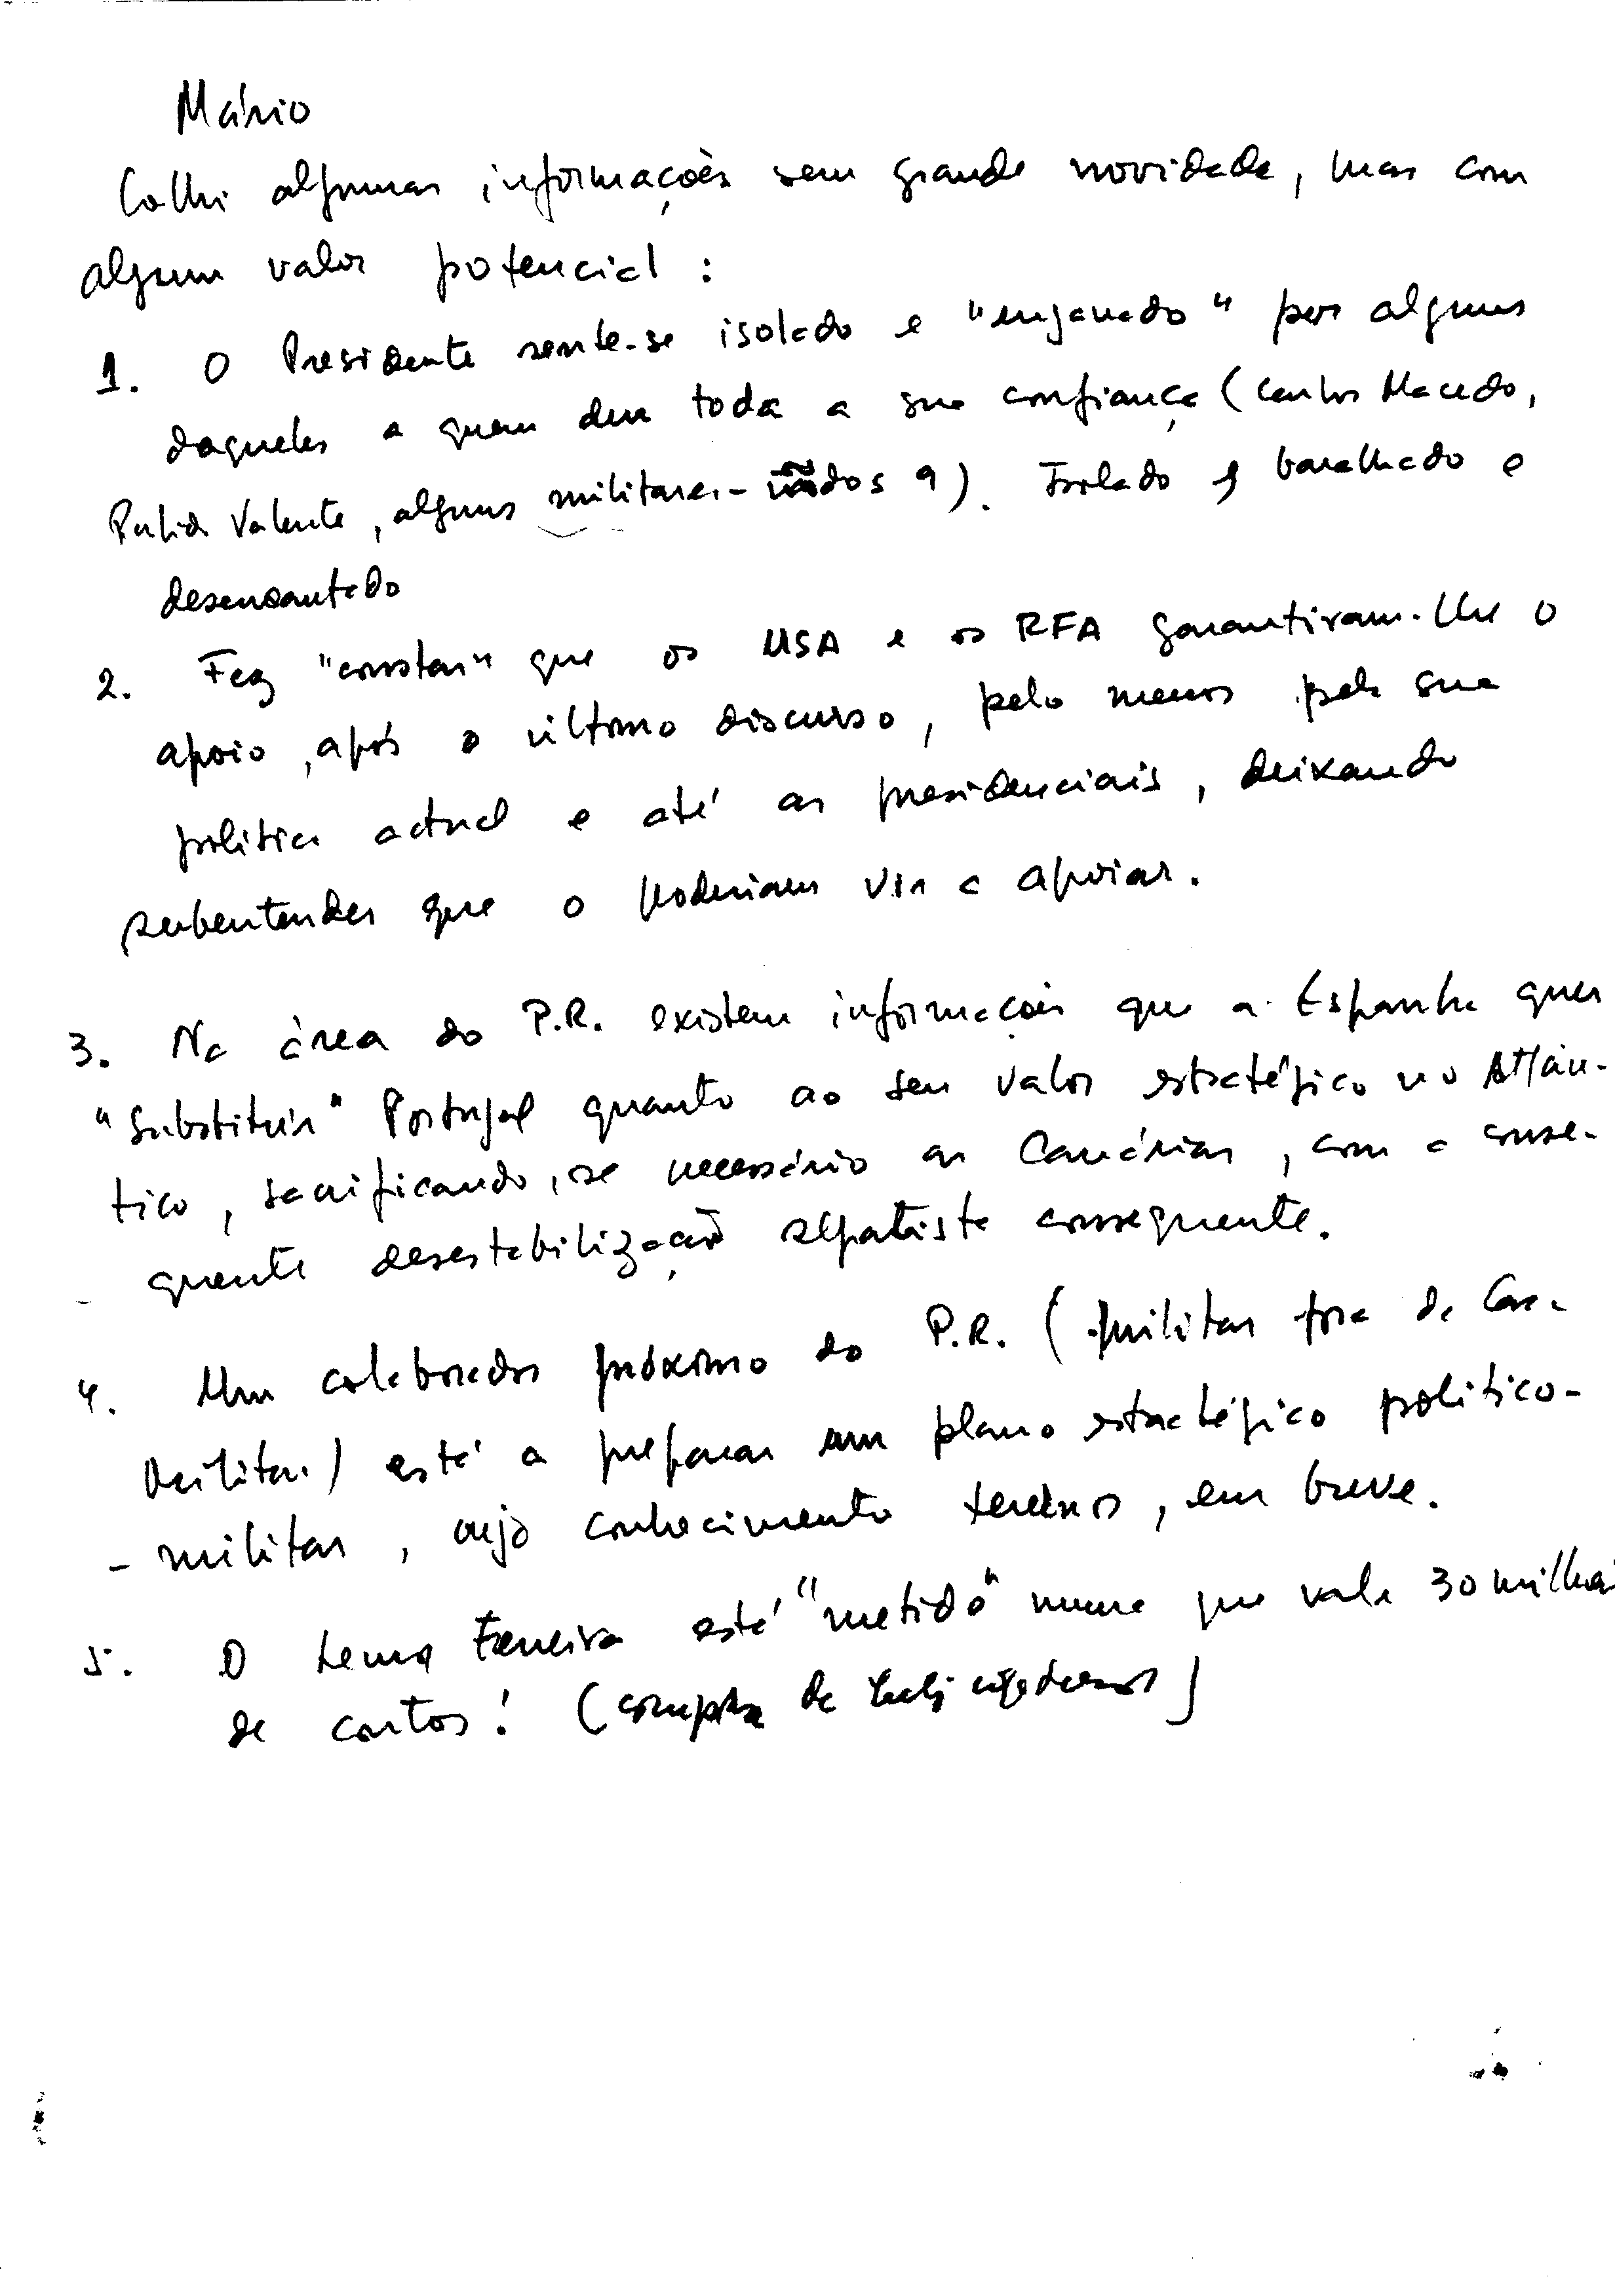 Mário
Colhi algumas informações sem grande novidade, mas com
algum valor potencial :
1. O Presidente sente-se isolado e "enganado" por alguns
daqueles a quem deu toda a sua confiança (Carlos Macedo,
Pulido Valente, alguns militares - não dos 9). Isolado, baralhado e
desencantado
2. Fez "constar" que os USA e os RFA garantiram-lhe o
apoio, após o último discurso, pelo menos pela sua
política actual e até as presidenciais, deixando
subentender que o poderiam vir a apoiar.
3. Na área do P.R. existem informações que a Espanha quer
"substituir" Portugal quanto ao seu valor estratégico no Atlân-
tico, sacrificando, se necessário as Canárias, com a conse-
quente desestabilização separatista consequente.
4. Um colaborador próximo do P.R. (militar fora da Casa
Militar) está a preparar um plano estratégico político-
- militar, cujo conhecimento teremos, em breve.
5. O Lema Ferreira está "metido" numa que vale 30 milhões
de contos! (compra de helicópteros)